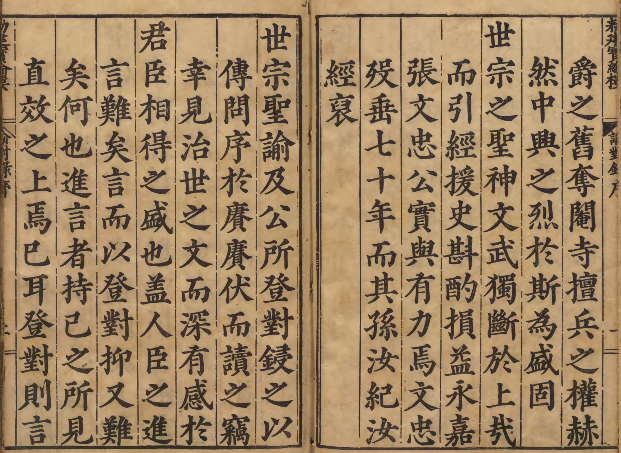 爵之舊奪閹寺擅兵之權赫
然中興之烈於斯為盛固
世宗之聖神文武獨斷於上㢤
而引經援史斟酌損益永嘉
張文忠公實與有力焉文忠
歿垂七十年而其孫汝紀汝
經裒
世宗聖諭及公所登對鋟之以
傳問序於賡賡伏而讀之竊
幸見治世之文而深有感於
君臣相得之盛也盖人臣之進
言難矣言而以登對抑又難
矣何也進言者持己之所見
直效之上焉已耳登對則言